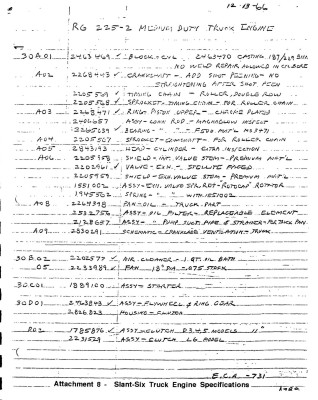 12-13-66
RG 225-2 MEDIUM DUTY TRUCK ENGINE
30A01 2463469 ✓ BLOCK-CYL - 2463470 CASTING
NO WELD REPAIR ALLOWED IN CYL BORE
A02 2268443 ✓ CRANKSHAFT - ADD SHOT PEENING - NO
STRAIGHTENING AFTER SHOT PEEN
2205509 ✓ TIMING CHAIN - ROLLER, DOUBLE ROW
2205508 ✓ SPROCKET-TIMING CHAIN - FOR ROLLER CHAIN
A03 2268471 ✓ RING PISTON UPPER - CHROME PLATED
2406657 ASSY-CONN ROD - MAGNAGLOW INSPECT
BEARING
A04 2205507 SPROCKET-CAMSHAFT - FOR ROLLER CHAIN
A05 2843193 ✓ HEAD-CYLINDER - EXTRA INSPECTION
A06 2205958 ✓ SHIELD-INT. VALVE STEM - PREMIUM MAT'L
2202961 ✓ VALVE-EXH. - STELLITE FACED
2205959 ✓ SHIELD-EXH. VALVE STEM - PREMIUM MAT'L
1551002 ✓ ASSY-EXH. VALVE SPR. RET-ROTOCAP ROTATOR
1945552 ✓ SPRING - " " WITH 1551002
A08 PAN-OIL - TRUCK PART
2532756 ASSY-OIL FILTER - REPLACEABLE ELEMENT
2128637 ASSY- " PUMP SUCT. PIPE & STRAINER-FOR THICK PAN
A09 2530291 SCHEMATIC-CRANKCASE VENTILATION-TRUCK
30B02 2202577 ✓ AIR CLEANER - 1 QT. OIL BATH
05 2233989 ✓ FAN 18" DIA - .075 STOCK
30C01 1889100 ASSY-STARTER
30D01 2463843 ✓ ASSY-FLYWHEEL & RING GEAR
2826823 HOUSING-CLUTCH
D02 1785876 ✓ ASSY-CLUTCH D3,4,5 MODELS 11"
2231529 ASSY-CLUTCH L6 MODEL
E.C.A. -731
Attachment 8 - Slant-Six Truck Engine Specifications